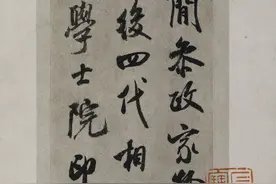 閒參政家
後四代相
學士院印